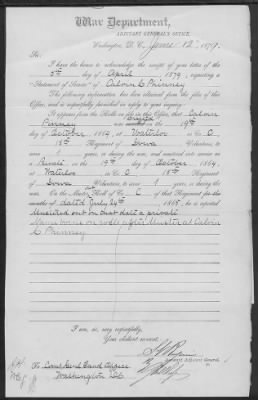 War Department,
ADJUTANT GENERAL'S OFFICE,
Washington, D. C., June 12th 1879.
Sir:
I have the honor to acknowledge the receipt of your letter of the
5th day of April 1879, requesting a
"Statement of Service" of Calvin C Phinney
The following information has been obtained from the files of this
Office, and is respectfully furnished in reply to your inquiry.
It appears from the Rolls on file in this Office, that Calvin
Pinney was enrolled on the 19th
day of October 1864, at Waterloo in Co. C
18th Regiment of Iowa Volunteers, to
serve 1 years, or during the war, and mustered into service as
a Private on the 19th day of October 1864,
at Waterloo in Co. C 18th Regiment
of Iowa Volunteers, to serve 1 years, or during the
war. On the Muster out Roll of Co. C of that Regiment for the
months of dated July 20th 1865, he is reported
Mustered out on that date a private
Name borne on rolls of Muster as Calvin
C Phinney
I am, sir, very respectfully,
Your obedient servant,
Assistant Adjutant General.
To
Washington D.C.